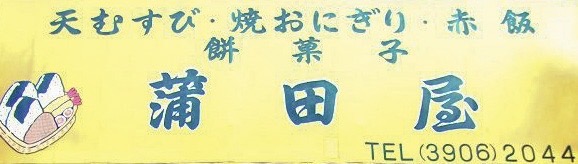 天むすび・焼おにぎり・赤飯
餅菓子
蒲田屋
TEL(3906)2044